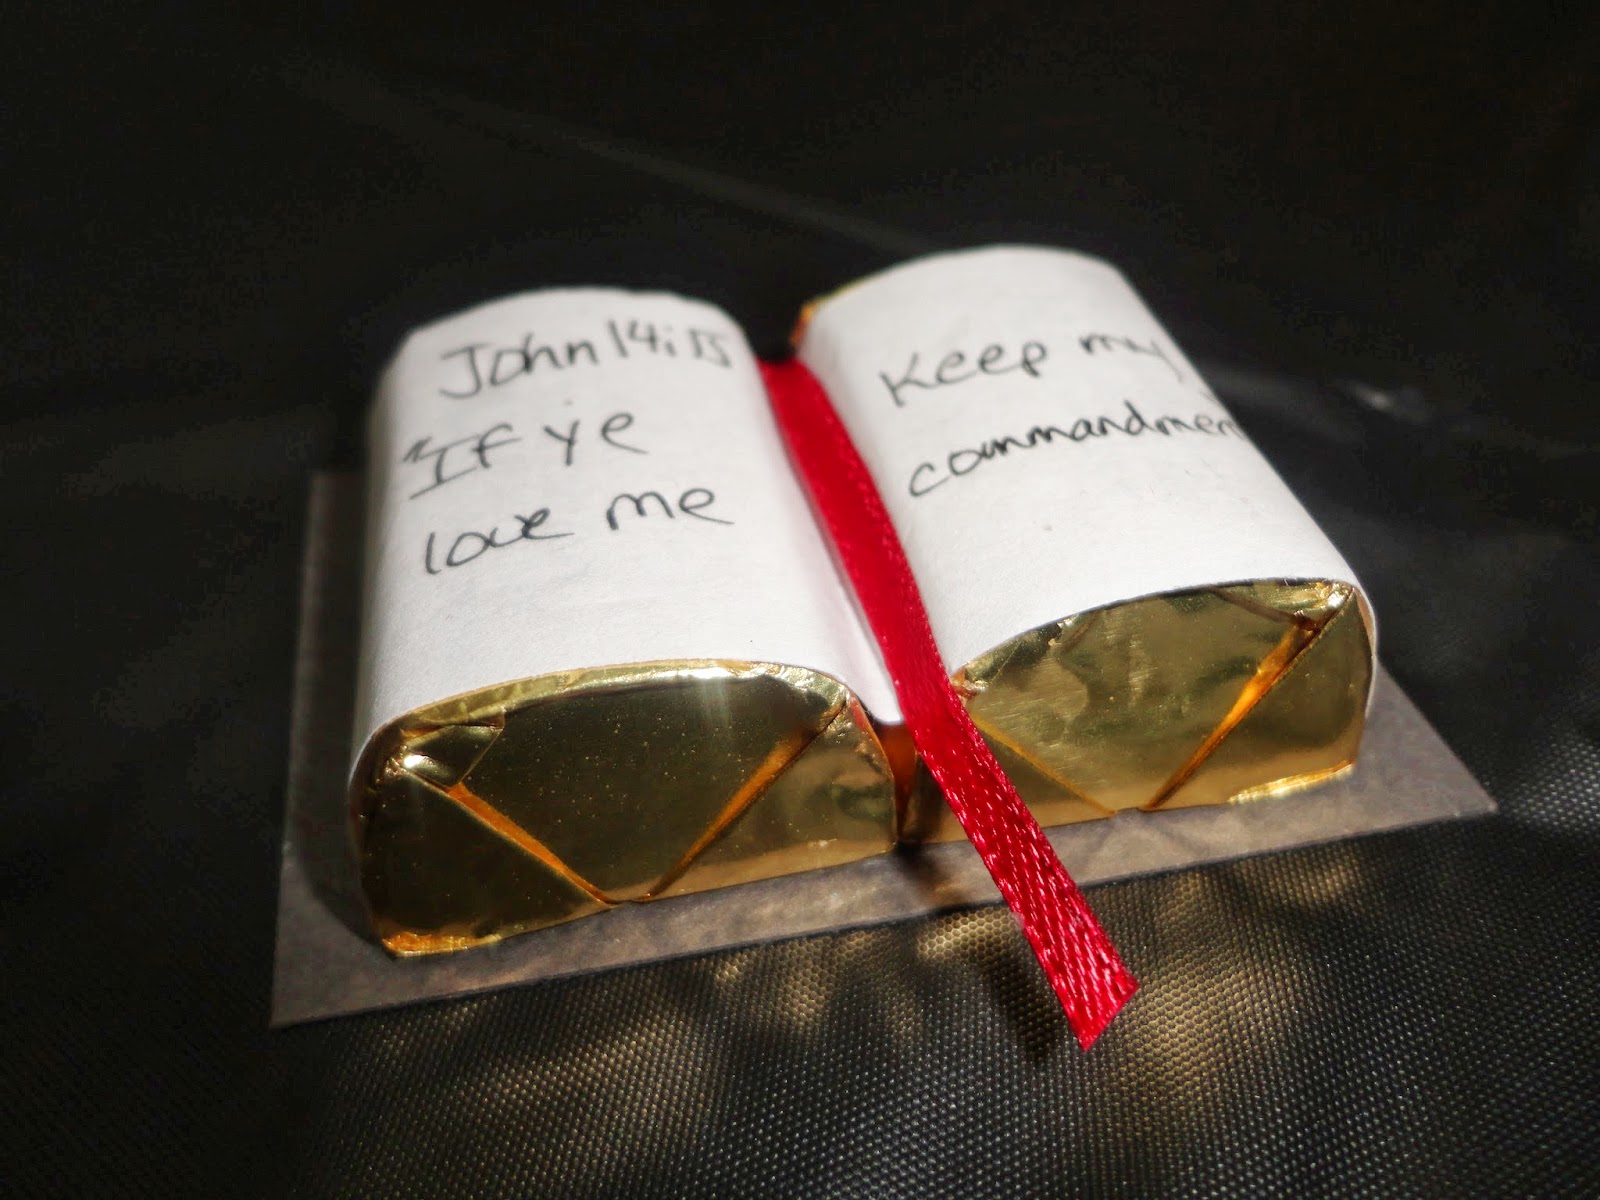 John 14:15
"If ye
love me
Keep my
commandment